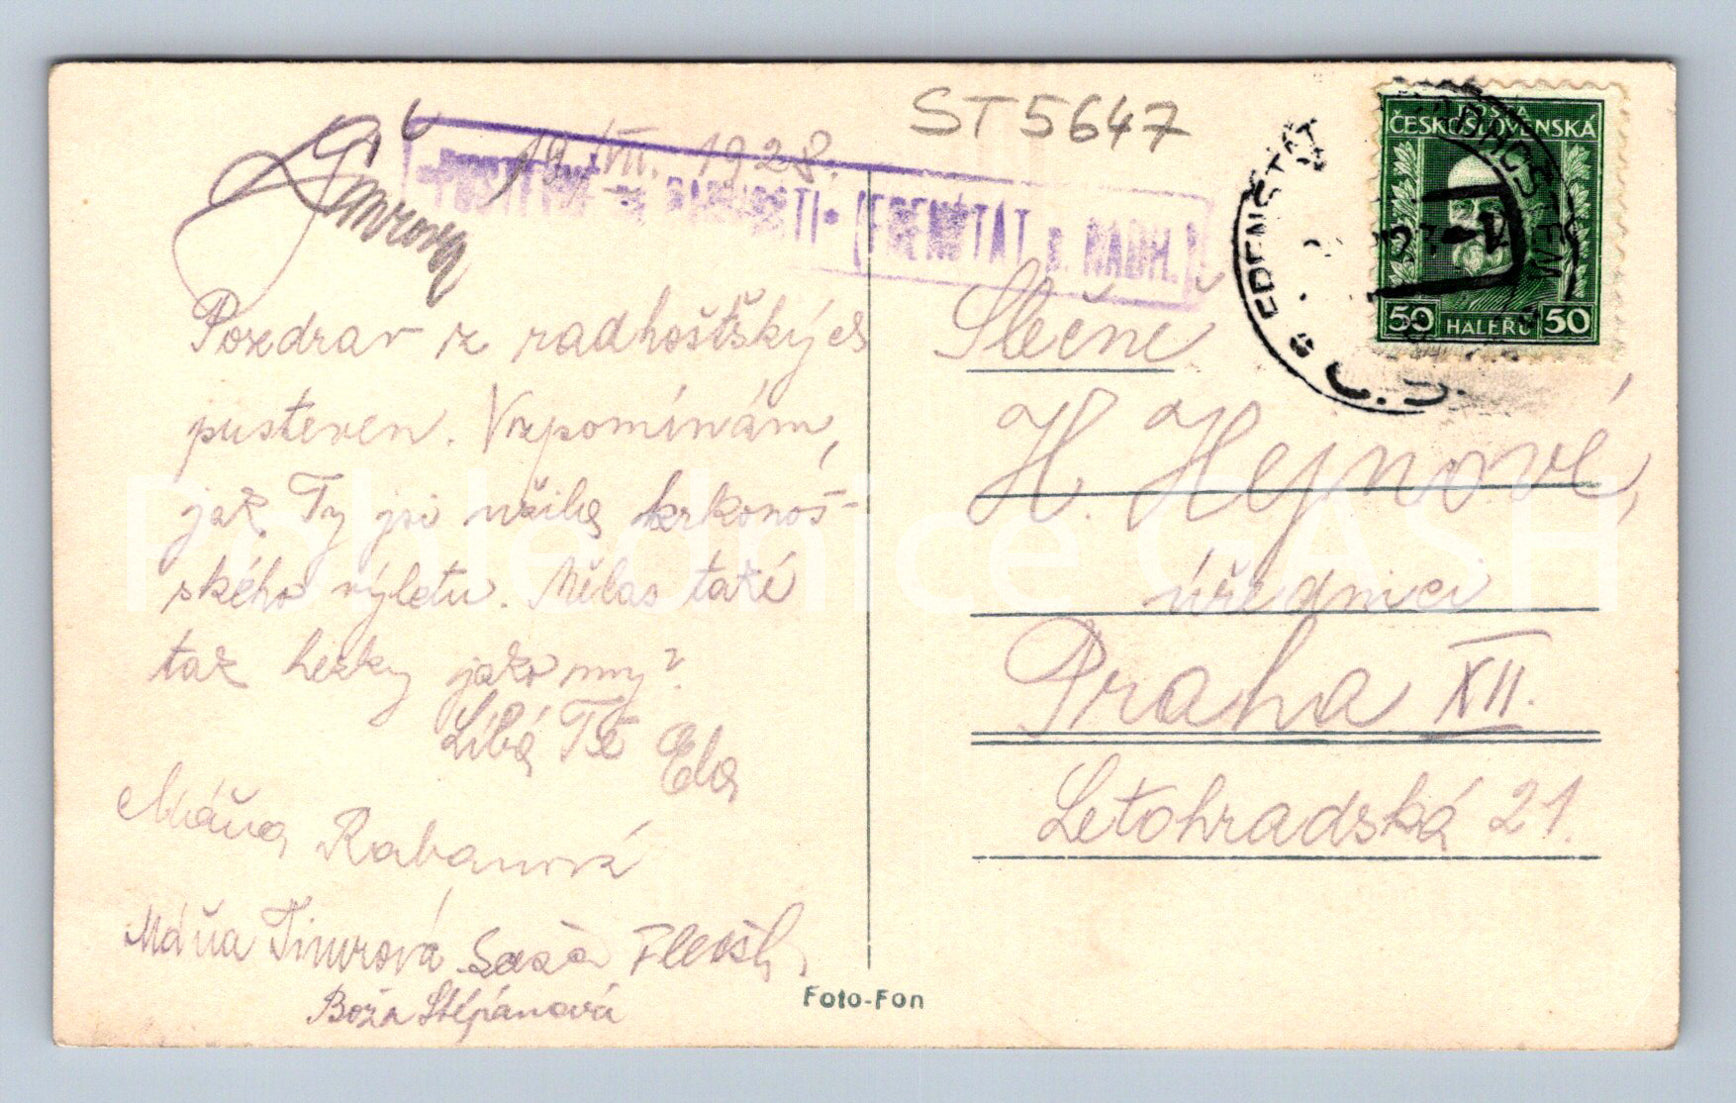 ST5647
19. VII. 1928.
Timrová
PUSTEVNĚ RADHOŠTI · FRENŠTÁT p. RADH.
POŠTA
ČESKOSLOVENSKÁ
50 HALÉŘŮ 50
Pozdrav z radhošťských
pusteven. Vzpomínám,
jak Ty jsi užila krkonoš-
ského výletu. Mělas také
tak hezky jako my?
Líbá Tě Ela
Máňa Rabanová
Máňa Timrová Saša
Boža Štěpánová
Slečně
H. Hejnové,
úřednici
Praha XII.
Letohradská 21.
Foto-Fon
Pohlednice GASH